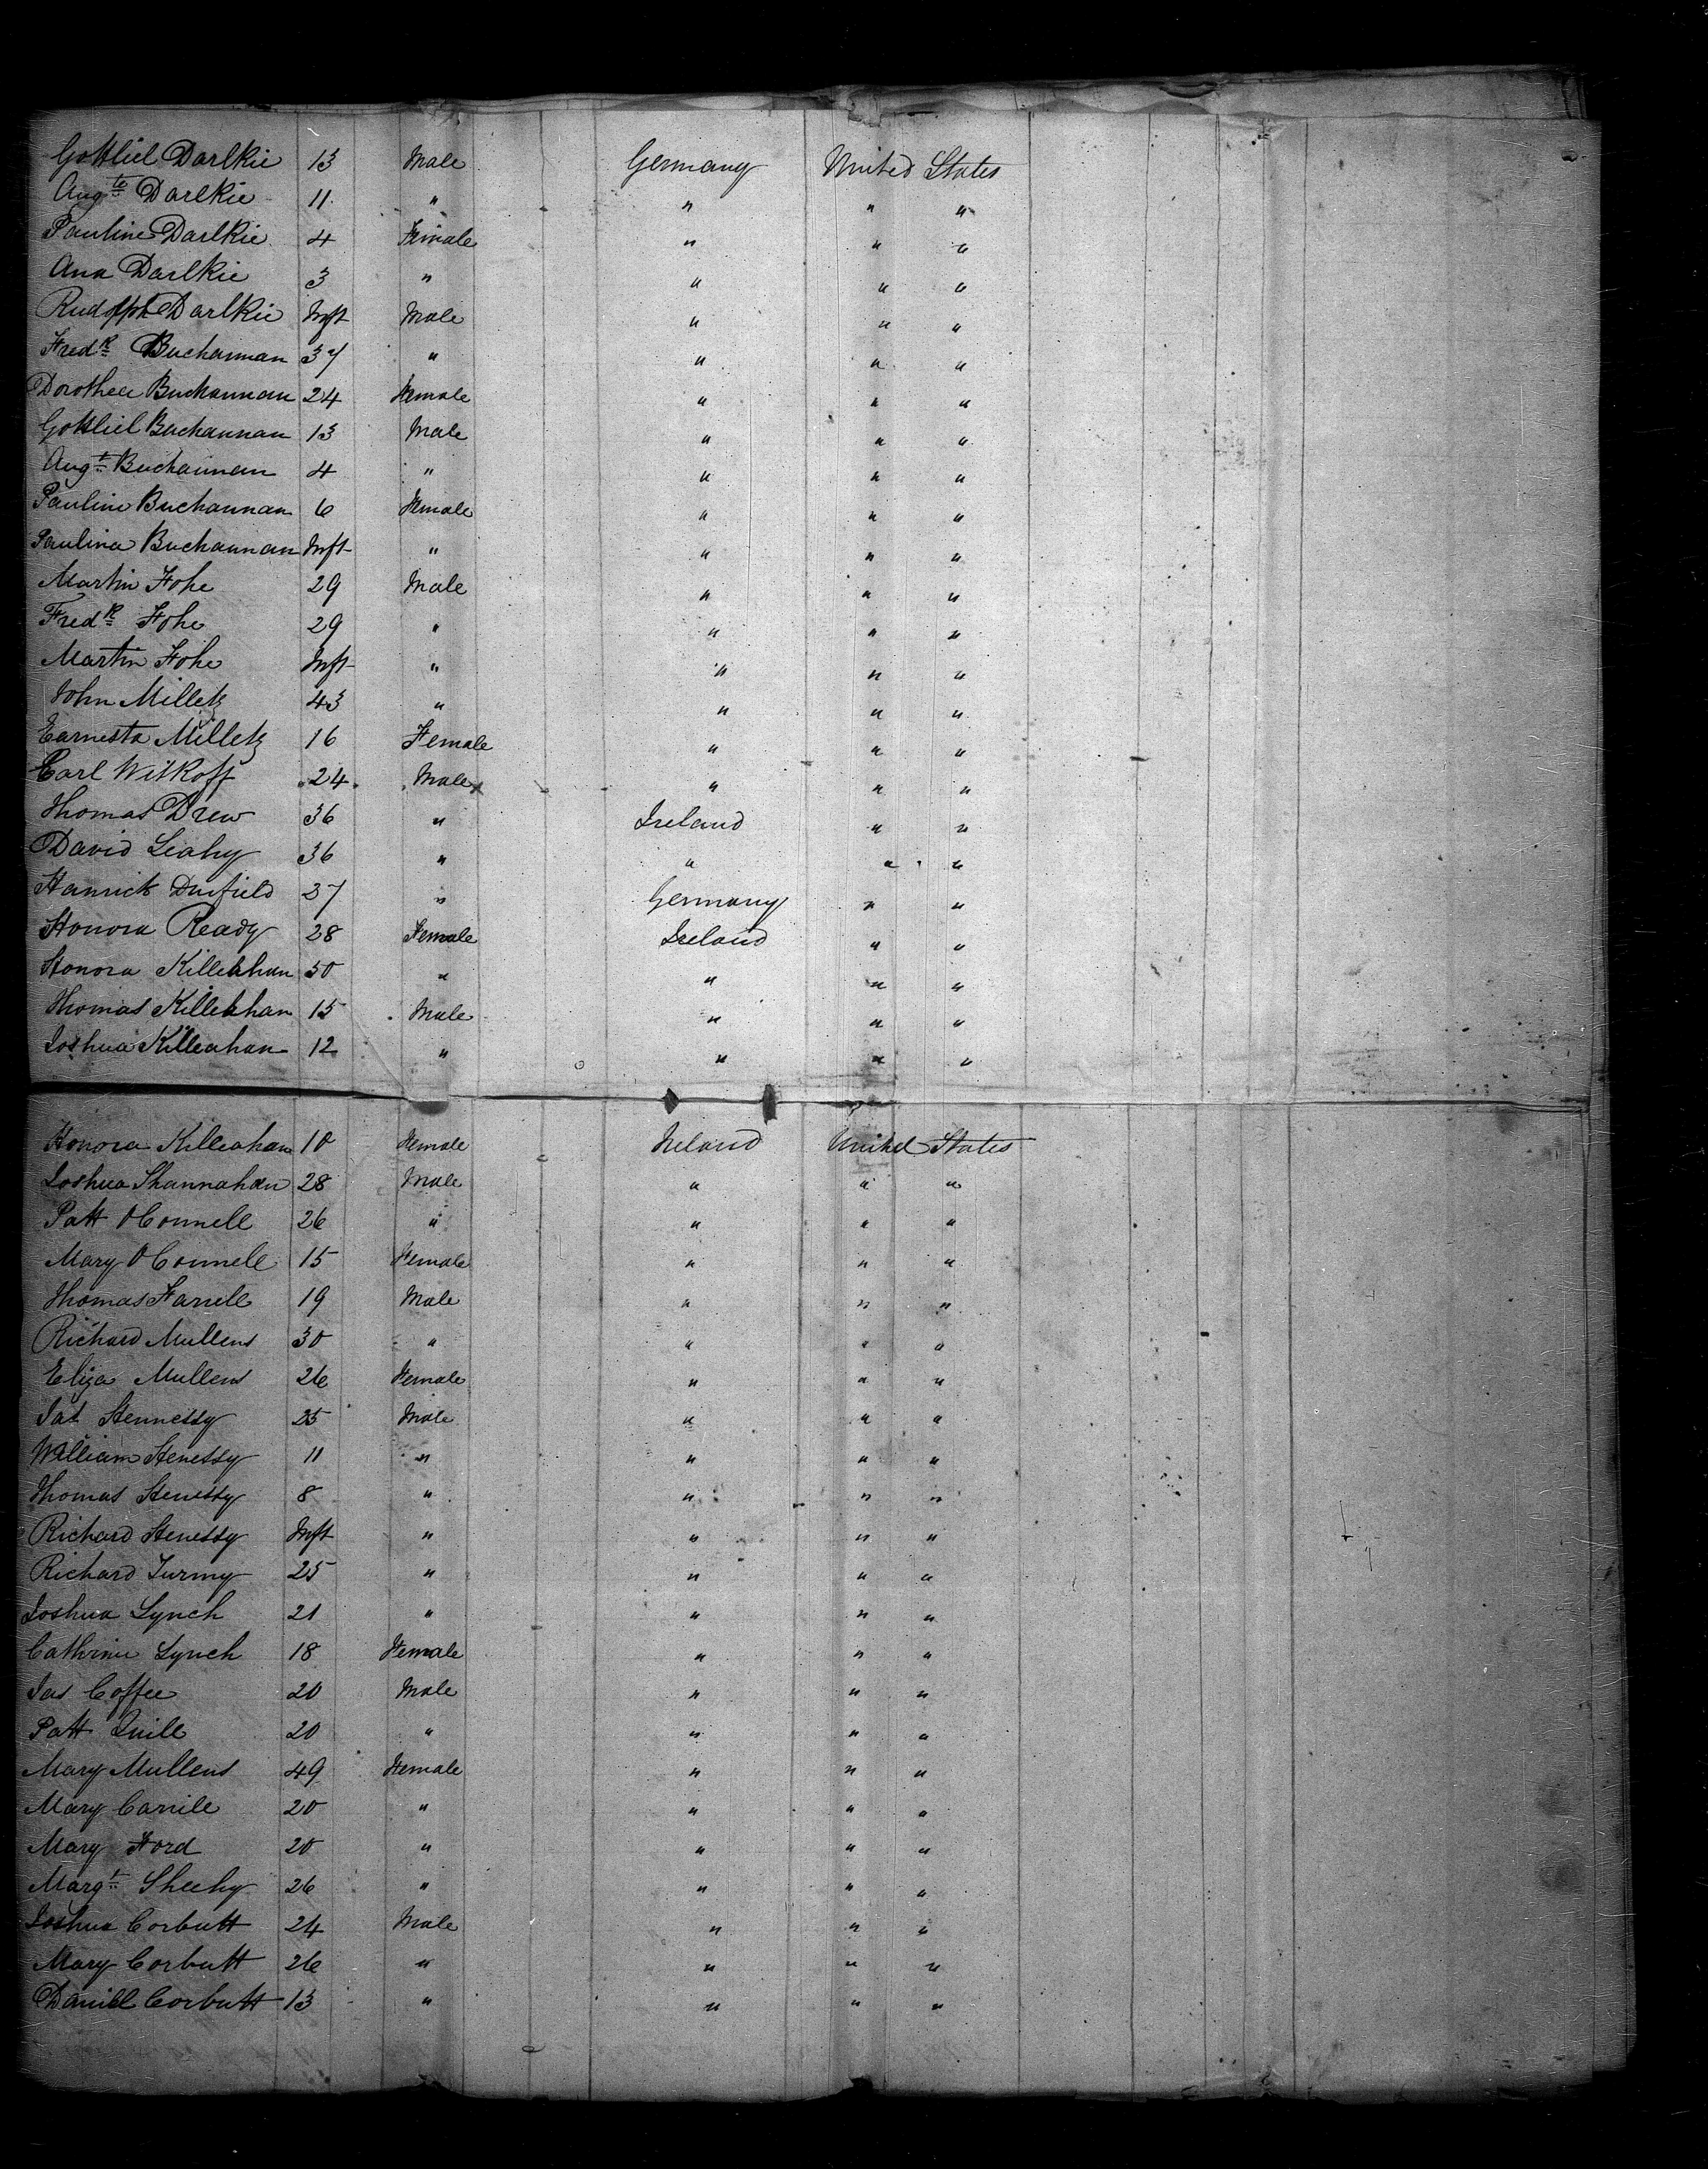 Gottliel Darlkie 13 Male Germany United States
Augte Darlkie 11 " " " "
Pauline Darlkie 4 Female " " "
Ana Darlkie 3 " " " "
Rudolph Darlkie Inft Male " " "
Fredk Buchannan 37 " " " "
Dorothea Buchannan 24 Female " " "
Gottliel Buchannan 13 Male " " "
Augt Buchannan 4 " " " "
Pauline Buchannan 6 Female " " "
Paulina Buchannan Inft " " " "
Martin Hohe 29 Male " " "
Fredk Hohe 29 " " " "
Martin Hohe Inft " " " "
John Milletz 43 " " " "
Earnesta Milletz 16 Female " " "
Carl Witkoff 24 Male " " "
Thomas Drew 36 " Ireland " "
David Leahy 36 " " " "
Hanrick Durfield 27 " Germany " "
Honora Ready 28 Female Ireland " "
Honora Killeahan 50 " " " "
Thomas Killeahan 15 Male " " "
Joshua Killeahan 12 " " " "
Honora Killeahan 10 Female Ireland United States
Joshua Shannahan 28 Male " " "
Patt OConnell 26 " " " "
Mary OConnell 15 Female " " "
Thomas Farrell 19 Male " " "
Richard Mullens 30 " " " "
Eliza Mullens 26 Female " " "
Jas Hennessy 25 Male " " "
William Henessy 11 " " " "
Thomas Henessy 8 " " " "
Richard Henessy Inft " " " "
Richard Turmy 25 " " " "
Joshua Lynch 21 " " " "
Cathrine Lynch 18 Female " " "
Jas Coffee 20 Male " " "
Patt Quill 20 " " " "
Mary Mullens 49 Female " " "
Mary Carrile 20 " " " "
Mary Ford 20 " " " "
Margt Sheehy 26 " " " "
Joshua Corbutt 24 Male " " "
Mary Corbutt 26 " " " "
Daniel Corbutt 13 " " " "